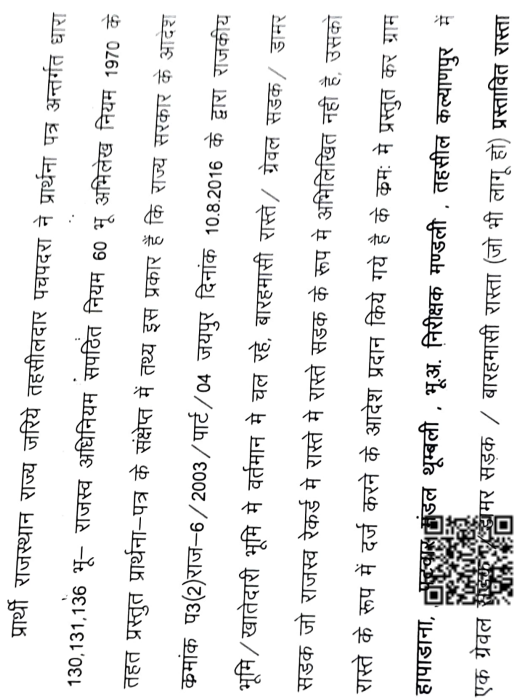 प्रार्थी राजस्थान राज्य जरिये तहसीलदार पचपदरा ने प्रार्थना पत्र अन्तर्गत धारा
130,131,136 भू– राजस्व अधिनियम सपठित नियम 60 भू अभिलेख नियम 1970 के
तहत प्रस्तुत प्रार्थना–पत्र के संक्षेप्त में तथ्य इस प्रकार है कि राज्य सरकार के आदेश
कमांक प3(2)राज–6/2003/पार्ट/04 जयपुर दिनांक 10.8.2016 के द्वारा राजकीय
भूमि/खातेदारी भूमि मे वर्तमान मे चल रहे, बारहमासी रास्ते/ ग्रेवल सडक/ डामर
सडक जो राजस्व रेकर्ड मे रास्ते मे रास्ते सडक के रूप मे अभिलिखित नही है, उसको
रास्ते के रूप में दर्ज करने के आदेश प्रदान किये गये है के कम: मे प्रस्तुत कर ग्राम
हापाडाना, मंडल थूम्बली , भू.अ. निरीक्षक मण्डली , तहसील कल्याणपुर में
एक ग्रेवल सडक / डामर सड़क / बारहमासी रास्ता (जो भी लागू हो) प्रस्तावित रास्ता